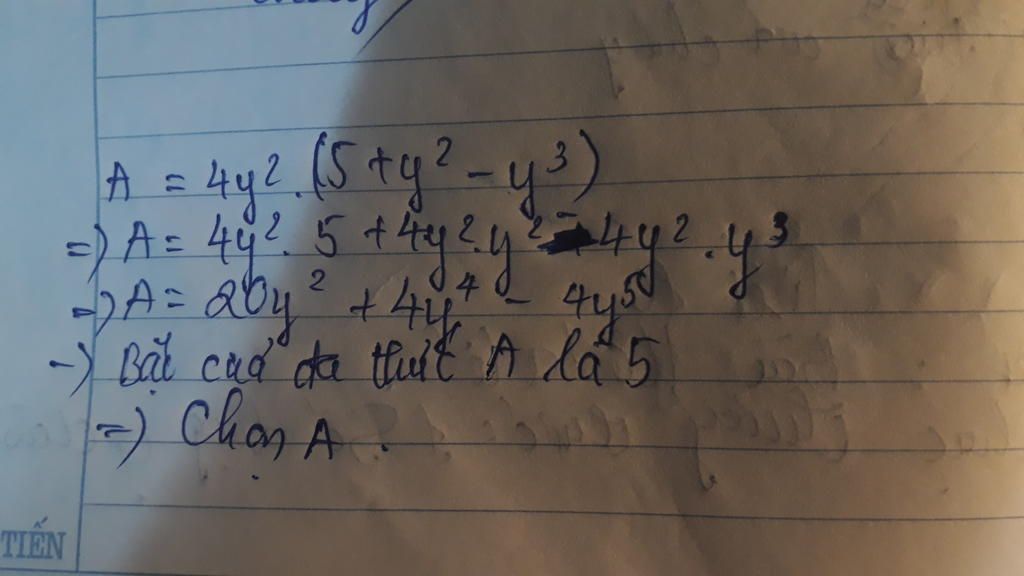 A = 4y². (5 + y² - y³)
=) A = 4y². 5 + 4y². y² - 4y² . y³
=) A = 20y² + 4y⁴ - 4y⁵
-) Bậc của đa thức A là 5
=) Chọn A .
TIẾN